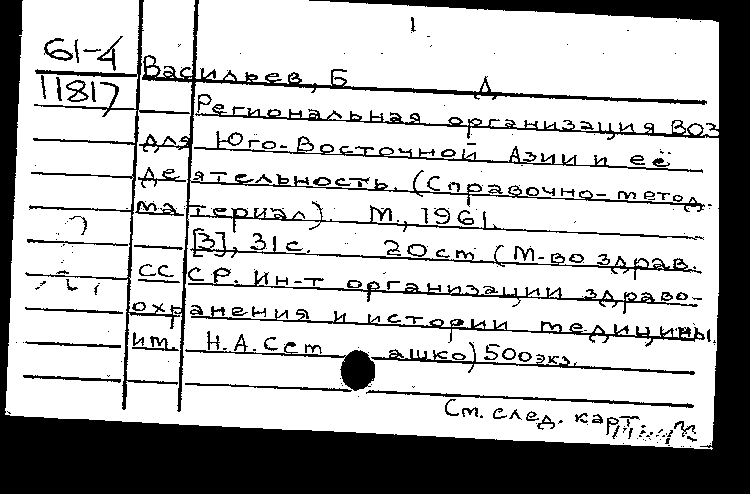 1
61-4
11817
Васильев, Б Д
Региональная организация ВОЗ
для Юго-Восточной Азии и её
деятельность. (Справочно-метод.
материал). М., 1961.
[3], 31 с. 20 см (М-во здрав.
СССР. Ин-т организации здраво-
охранения и истории медицины
им. Н.А. Сем ашко) 500 экз.
См. след. карт